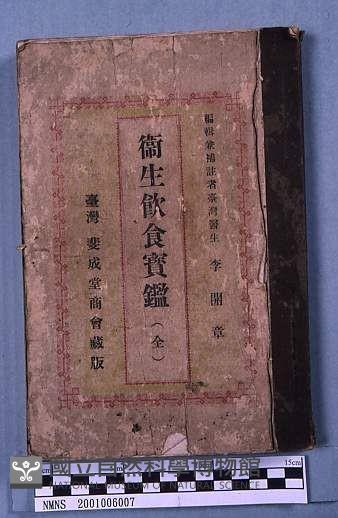 編輯兼補註者臺灣醫生　李開章
衞生飲食寶鑑（全）
臺灣　斐成堂商會藏版
國立自然科學博物館
NATIONAL MUSEUM OF NATURAL SCIENCE
cm
15cm
NMNS 2001006007